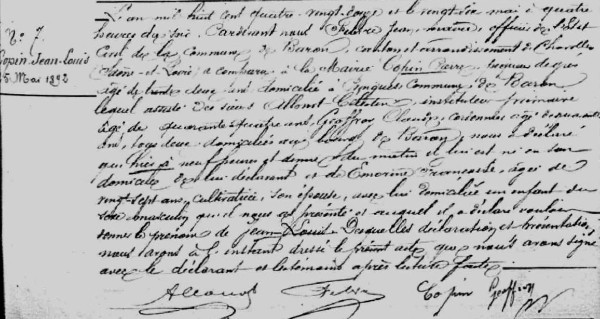 N° 7.
Copin Jean-Louis
25 Mai 1892
L'an mil huit cent quatre-vingt-douze et le vingt-six mai à quatre
heures du soir Pardevant nous Febvre Jean, maire, officier de l'Etat
Civil de la Commune de Baron, canton et arrondissement de Charolles
Saône-et-Loire, a comparu à la Mairie Copin Pierre,
âgé de trente deux ans domicilié à Commune de Baron
lequel assisté des sieurs instituteur primaire
âgé de quarante quatre ans, Geoffroy Claude, cordonnier âgé de
ans, tous deux domiciliés au bourg de Baron, nous a déclaré
que hier à neuf heures et demie du matin il lui est né en son
domicile de lui déclarant et de Emorine Françoise, âgée de
vingt sept ans, cultivatrice, son épouse, avec lui domiciliée un enfant du
sexe masculin qu'il nous a présenté et auquel il a déclaré vouloir
donner le prénom de Jean Louis. Desquelles déclaration et présentation
nous avons à l'instant dressé le présent acte que nous avons signé
avec le déclarant et les témoins après lecture faite.
Copin Geoffroy